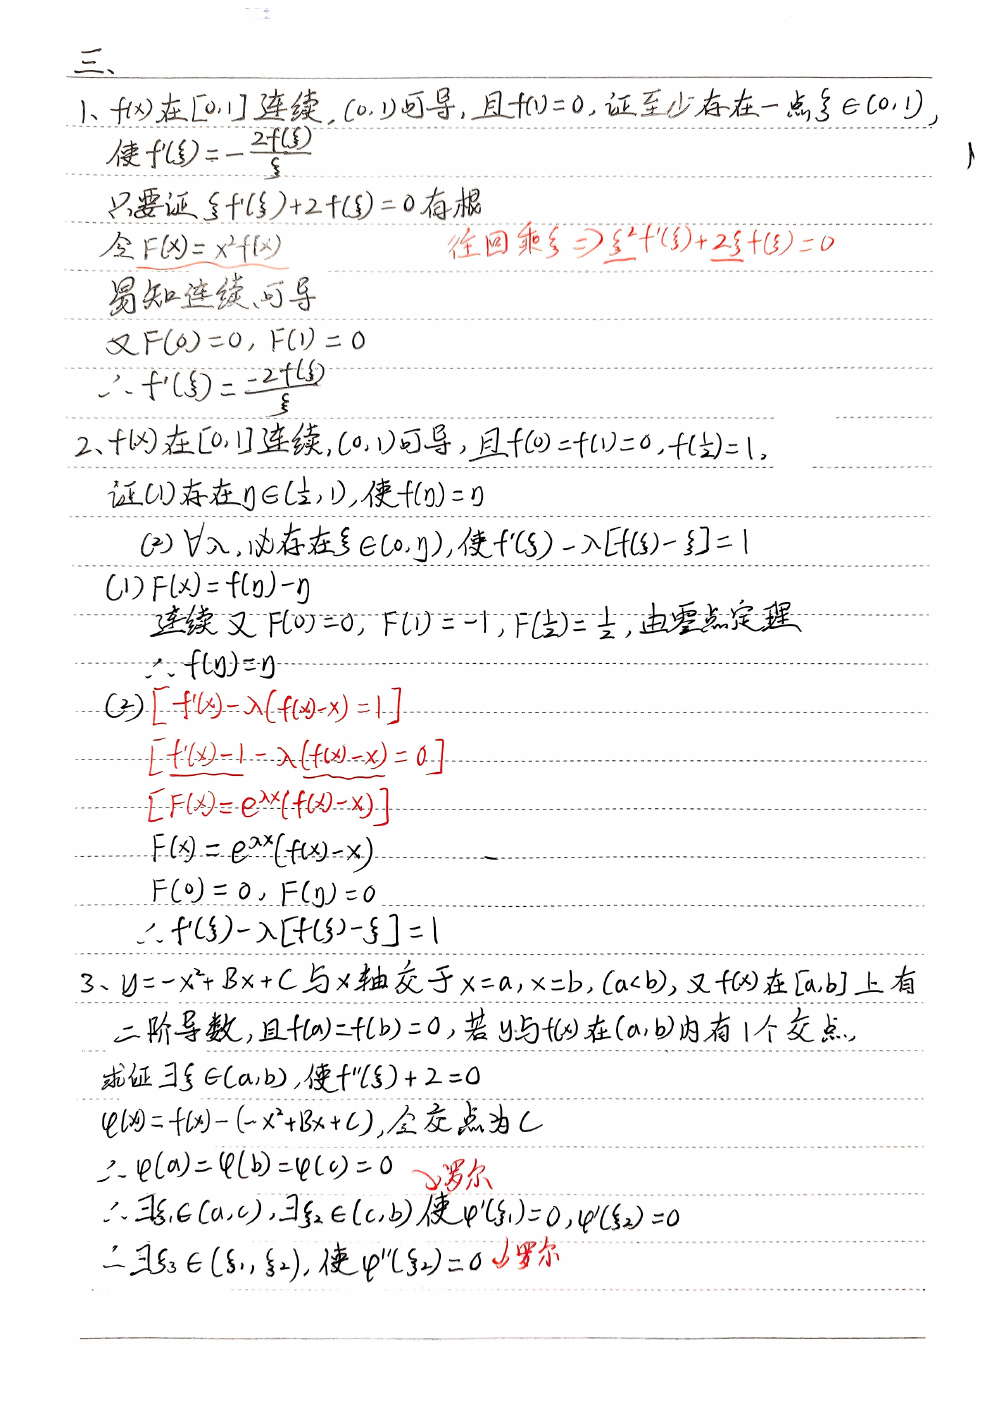 三、
1、f(x)在[0,1]连续,(0,1)可导,且f(1)=0,证至少存在一点ξ∈(0,1),
使f'(ξ)=-2f(ξ)/ξ
只要证ξf'(ξ)+2f(ξ)=0有根
令F(x)=x²f(x) 往回乘ξ⇒ξ²f'(ξ)+2ξf(ξ)=0
易知连续、可导
又F(0)=0, F(1)=0
∴f'(ξ)=-2f(ξ)/ξ
2、f(x)在[0,1]连续,(0,1)可导,且f(0)=f(1)=0,f(½)=1,
证(1)存在η∈(½,1),使f(η)=η
(2)∀λ,必存在ξ∈(0,η),使f'(ξ)-λ[f(ξ)-ξ]=1
(1)F(x)=f(η)-η
连续又F(0)=0, F(1)=-1, F(½)=½,由零点定理
∴f(η)=η
(2)[f'(x)-λ(f(x)-x)=1]
[f'(x)-1-λ(f(x)-x)=0]
[F(x)=e^λx(f(x)-x)]
F(x)=e^λx(f(x)-x)
F(0)=0, F(η)=0
∴f'(ξ)-λ[f(ξ)-ξ]=1
3、y=-x²+Bx+C与x轴交于x=a,x=b,(a<b),又f(x)在[a,b]上有
二阶导数,且f(a)=f(b)=0,若y与f(x)在(a,b)内有1个交点,
求证∃ξ∈(a,b),使f''(ξ)+2=0
φ(x)=f(x)-(-x²+Bx+C),令交点为C
∴φ(a)=φ(b)=φ(c)=0 ↘罗尔
∴∃ξ₁∈(a,c),∃ξ₂∈(c,b)使φ'(ξ₁)=0,φ'(ξ₂)=0
∴∃ξ₃∈(ξ₁,ξ₂),使φ''(ξ₂)=0 ↙罗尔